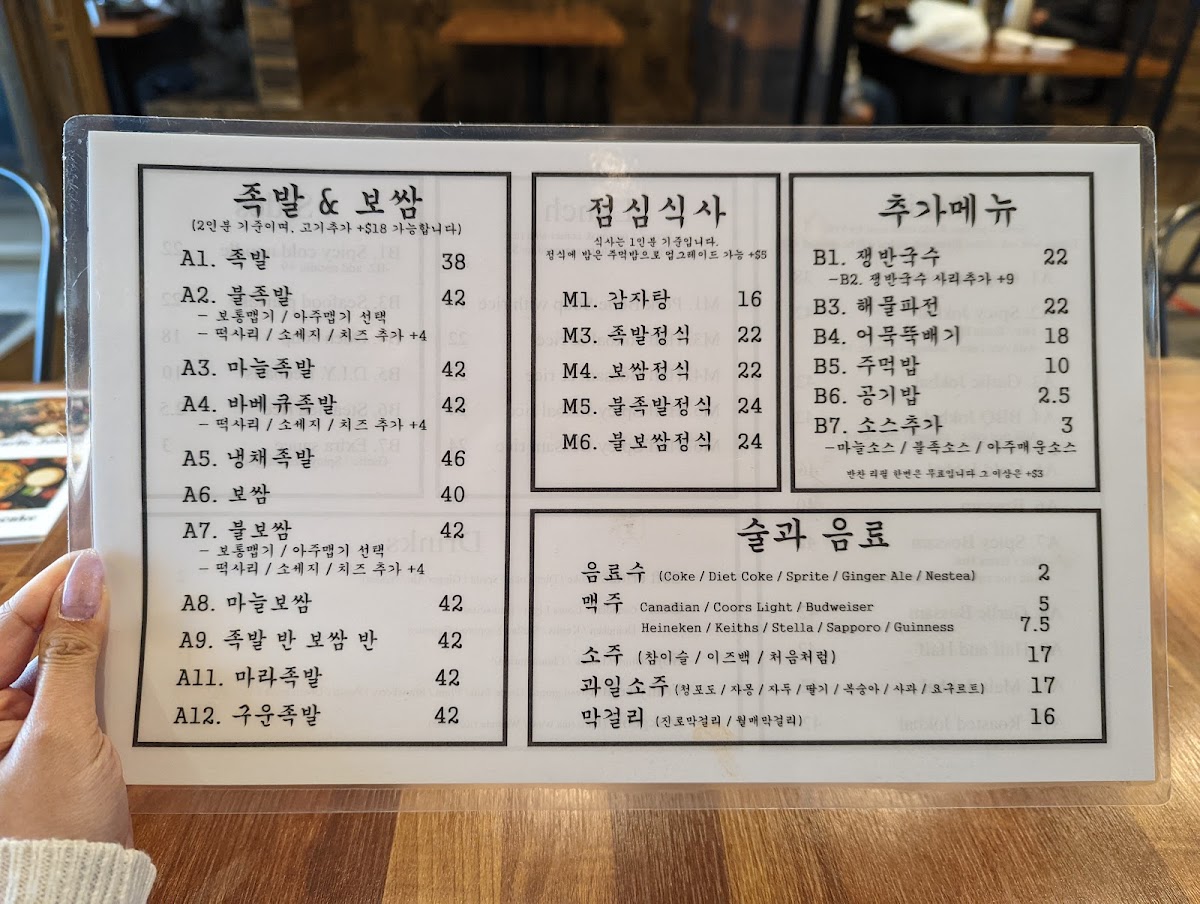 족발 & 보쌈
(2인분 기준이며, 고기추가 +$18 가능합니다)
A1. 족발 38
A2. 불족발 42
- 보통맵기 / 아주맵기 선택
- 떡사리 / 소세지 / 치즈 추가 +4
A3. 마늘족발 42
A4. 바베큐족발 42
- 떡사리 / 소세지 / 치즈 추가 +4
A5. 냉채족발 46
A6. 보쌈 40
A7. 불보쌈 42
- 보통맵기 / 아주맵기 선택
- 떡사리 / 소세지 / 치즈 추가 +4
A8. 마늘보쌈 42
A9. 족발 반 보쌈 반 42
A11. 마라족발 42
A12. 구운족발 42
점심식사
식사는 1인분 기준입니다.
정식에 밥은 주먹밥으로 업그레이드 가능 +$5
M1. 감자탕 16
M3. 족발정식 22
M4. 보쌈정식 22
M5. 불족발정식 24
M6. 불보쌈정식 24
추가메뉴
B1. 쟁반국수 22
-B2. 쟁반국수 사리추가 +9
B3. 해물파전 22
B4. 어묵뚝배기 18
B5. 주먹밥 10
B6. 공기밥 2.5
B7. 소스추가 3
-마늘소스 / 불족소스 / 아주매운소스
반찬 리필 한번은 무료입니다 그 이상은 +$3
술과 음료
음료수 (Coke / Diet Coke / Sprite / Ginger Ale / Nestea) 2
맥주 Canadian / Coors Light / Budweiser 5
Heineken / Keiths / Stella / Sapporo / Guinness 7.5
소주 (참이슬 / 이즈백 / 처음처럼) 17
과일소주 (청포도 / 자몽 / 자두 / 딸기 / 복숭아 / 사과 / 요구르트) 17
막걸리 (진로막걸리 / 월매막걸리) 16